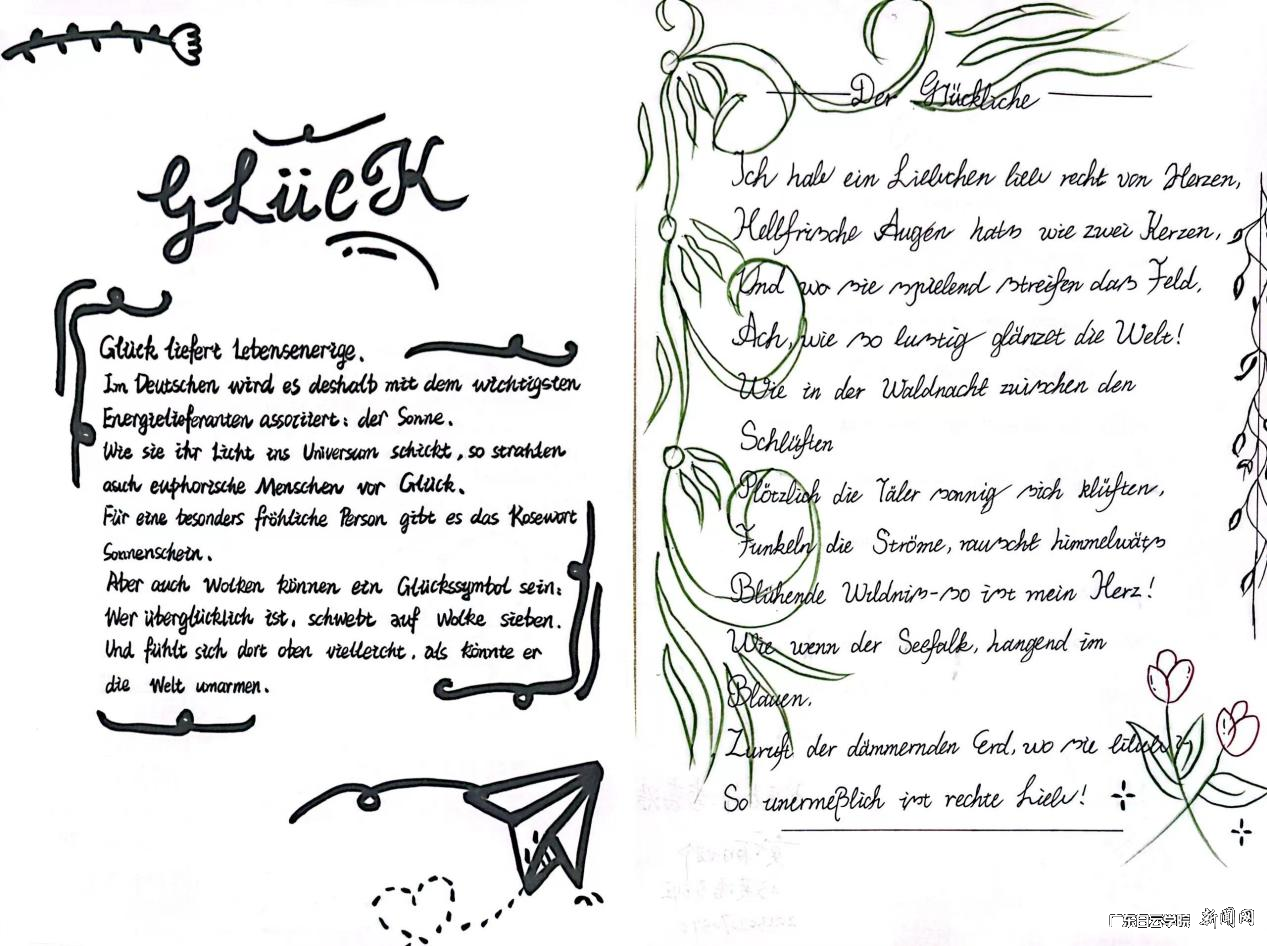 GLÜCK
Glück liefert Lebensenerige.
Im Deutschen wird es deshalb mit dem wichtigsten
Energielieferanten assoziiert: der Sonne.
Wie sie ihr Licht ins Universum schickt, so strahlen
auch euphorische Menschen vor Glück.
Für eine besonders fröhliche Person gibt es das Kosewort
Sonnenschein.
Aber auch Wolken können ein Glückssymbol sein:
Wer überglücklich ist, schwebt auf Wolke sieben.
Und fühlt sich dort oben vielleicht, als könnte er
die Welt umarmen.
Der Glückliche
Ich hab ein Liebchen lieb recht von Herzen,
Hellfrische Augen hats wie zwei Kerzen,
Und wo sie spielend streifen das Feld,
Ach, wie so lustig glänzet die Welt!
Wie in der Waldnacht zwischen den
Schlüften
Plötzlich die Täler sonnig sich klüften,
Funkeln die Ströme, rauscht himmelwäts
Blühende Wildnis-so ist mein Herz!
Wie wenn der Seefalk, hangend im
Blauen.
Zuruft der dämmernden Erd, wo sie
So unermeßlich ist rechte Lieb!
广东白云学院 新闻网